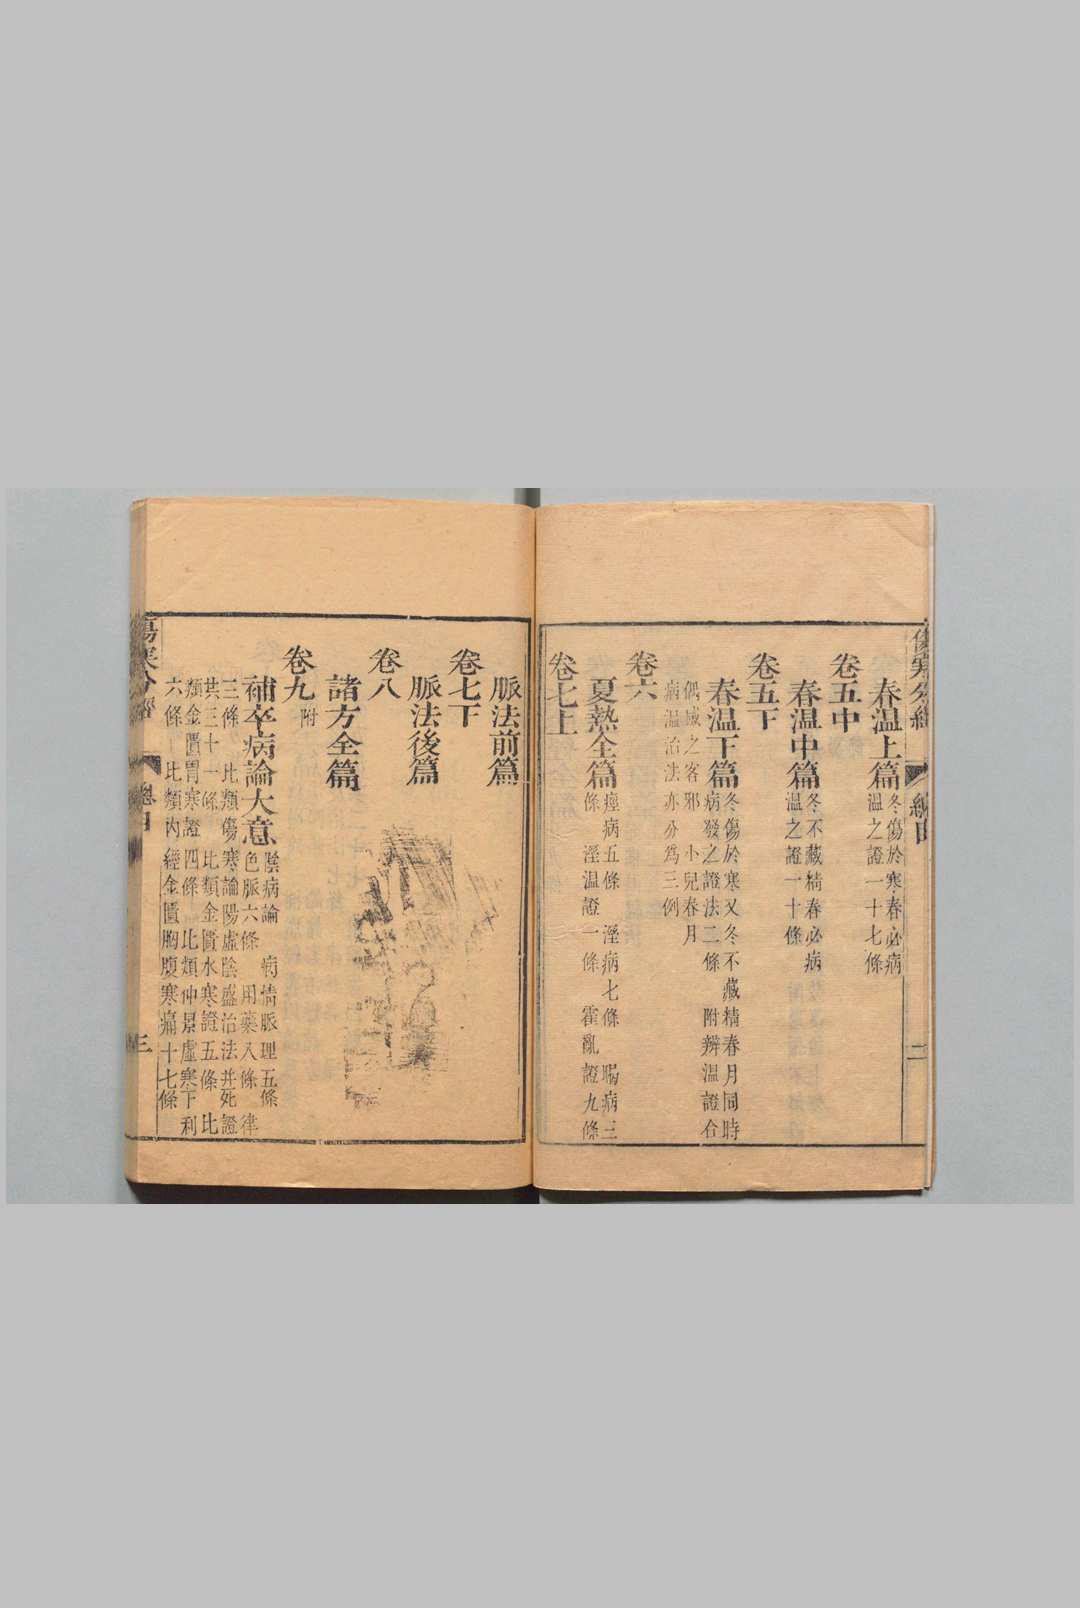 傷寒分經 總目 二
春温上篇 冬傷於寒春必病
温之證一十七條
卷五中
春温中篇 冬不藏精春必病
温之證一十條
卷五下
春温下篇 冬傷於寒又冬不藏精春月同時
病發之證法二條 附辨温證合
偶感之客邪 小兒春月
病温治法亦分爲三例
卷六
夏熱全篇 痙病五條 溼病七條 暍病三
條 溼温證一條 霍亂證九條
卷七上
脈法前篇
卷七下
脈法後篇
卷八
諸方全篇
卷九 附
補卒病論大意 陰病論 病情脈理五條
色脈六條 用藥八條 律
三條 比類傷寒論陽虛陰盛治法并死證
共三十一條 比類金匱水寒證五條 比
類金匱胃寒證四條 比類仲景虛寒下利
六條 比類內經金匱胸腹寒痛十七條
傷寒分經 總目 三